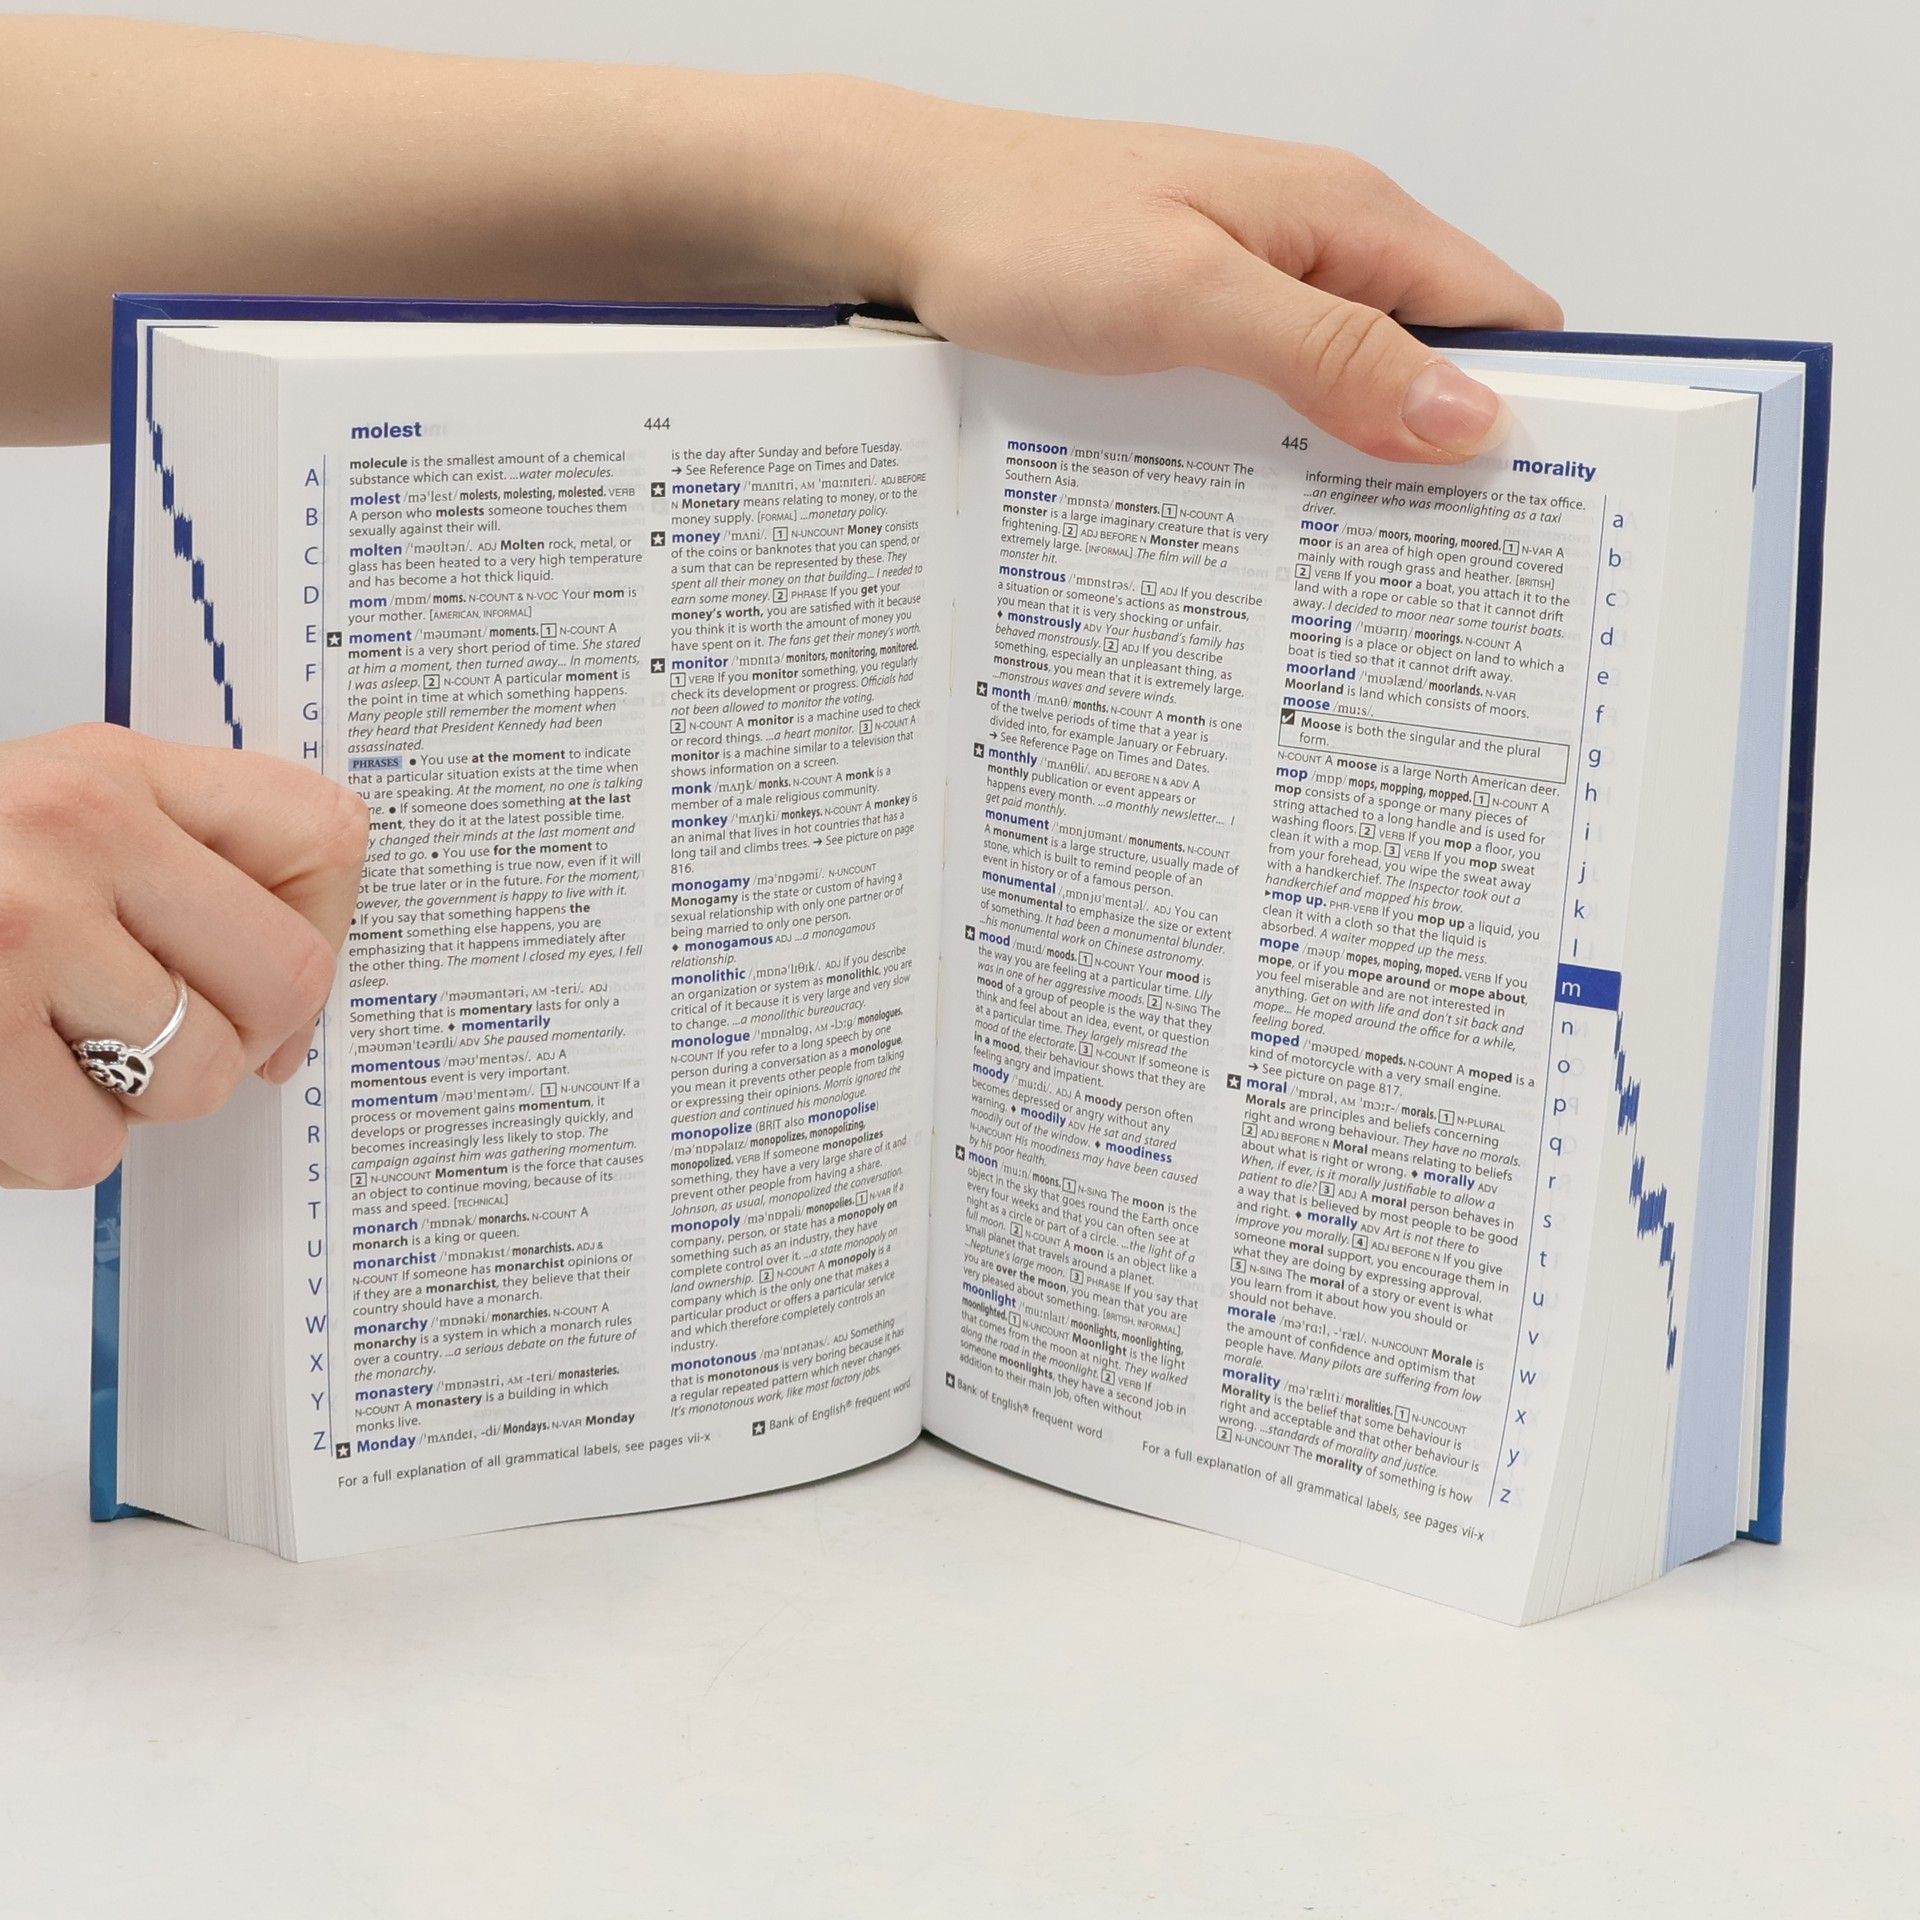 molest
444
A
B
C
D
E
F
G
H
P
Q
R
S
T
U
V
W
X
Y
Z
molecule is the smallest amount of a chemical
substance which can exist. ...water molecules.
molest /məˈlest/ molests, molesting, molested. VERB
A person who molests someone touches them
sexually against their will.
molten /ˈməʊltən/. ADJ Molten rock, metal, or
glass has been heated to a very high temperature
and has become a hot thick liquid.
mom /mɒm/ moms. N-COUNT & N-VOC Your mom is
your mother. [AMERICAN, INFORMAL]
★ moment /ˈməʊmənt/ moments. 1 N-COUNT A
moment is a very short period of time. She stared
at him a moment, then turned away... In moments,
I was asleep. 2 N-COUNT A particular moment is
the point in time at which something happens.
Many people still remember the moment when
they heard that President Kennedy had been
assassinated.
PHRASES ● You use at the moment to indicate
that a particular situation exists at the time when
you are speaking. At the moment, no one is talking
● If someone does something at the last
they do it at the latest possible time.
changed their minds at the last moment and
to go. ● You use for the moment to
that something is true now, even if it will
be true later or in the future. For the moment,
however, the government is happy to live with it.
● If you say that something happens the
moment something else happens, you are
emphasizing that it happens immediately after
the other thing. The moment I closed my eyes, I fell
asleep.
momentary /ˈməʊməntəri, AM -teri/. ADJ
Something that is momentary lasts for only a
very short time. ♦ momentarily
/ˌməʊmənˈteərɪli/ ADV She paused momentarily.
momentous /məʊˈmentəs/. ADJ A
momentous event is very important.
momentum /məʊˈmentəm/. 1 N-UNCOUNT If a
process or movement gains momentum, it
develops or progresses increasingly quickly, and
becomes increasingly less likely to stop. The
campaign against him was gathering momentum.
2 N-UNCOUNT Momentum is the force that causes
an object to continue moving, because of its
mass and speed. [TECHNICAL]
monarch /ˈmɒnək/ monarchs. N-COUNT A
monarch is a king or queen.
monarchist /ˈmɒnəkɪst/ monarchists. ADJ &
N-COUNT If someone has monarchist opinions or
if they are a monarchist, they believe that their
country should have a monarch.
monarchy /ˈmɒnəki/ monarchies. N-COUNT A
monarchy is a system in which a monarch rules
over a country. ...a serious debate on the future of
the monarchy.
monastery /ˈmɒnəstri, AM -teri/ monasteries.
N-COUNT A monastery is a building in which
monks live.
★ Monday /ˈmʌndeɪ, -di/ Mondays. N-VAR Monday
is the day after Sunday and before Tuesday.
→ See Reference Page on Times and Dates.
★ monetary /ˈmʌnɪtri, AM ˈmɑːnɪteri/. ADJ BEFORE
N Monetary means relating to money, or to the
money supply. [FORMAL] ...monetary policy.
★ money /ˈmʌni/. 1 N-UNCOUNT Money consists
of the coins or banknotes that you can spend, or
a sum that can be represented by these. They
spent all their money on that building... I needed to
earn some money. 2 PHRASE If you get your
money's worth, you are satisfied with it because
you think it is worth the amount of money you
have spent on it. The fans get their money's worth.
★ monitor /ˈmɒnɪtə/ monitors, monitoring, monitored.
1 VERB If you monitor something, you regularly
check its development or progress. Officials had
not been allowed to monitor the voting.
2 N-COUNT A monitor is a machine used to check
or record things. ...a heart monitor. 3 N-COUNT A
monitor is a machine similar to a television that
shows information on a screen.
monk /mʌŋk/ monks. N-COUNT A monk is a
member of a male religious community.
monkey /ˈmʌŋki/ monkeys. N-COUNT A monkey is
an animal that lives in hot countries that has a
long tail and climbs trees. → See picture on page
816.
monogamy /məˈnɒgəmi/. N-UNCOUNT
Monogamy is the state or custom of having a
sexual relationship with only one partner or of
being married to only one person.
♦ monogamous ADJ ...a monogamous
relationship.
monolithic /ˌmɒnəˈlɪθɪk/. ADJ If you describe
an organization or system as monolithic, you are
critical of it because it is very large and very slow
to change. ...a monolithic bureaucracy.
monologue /ˈmɒnəlɒg, AM -lɔːg/ monologues.
N-COUNT If you refer to a long speech by one
person during a conversation as a monologue,
you mean it prevents other people from talking
or expressing their opinions. Morris ignored the
question and continued his monologue.
monopolize (BRIT also monopolise)
/məˈnɒpəlaɪz/ monopolizes, monopolizing,
monopolized. VERB If someone monopolizes
something, they have a very large share of it and
prevent other people from having a share.
Johnson, as usual, monopolized the conversation.
monopoly /məˈnɒpəli/ monopolies. 1 N-VAR If a
company, person, or state has a monopoly on
something such as an industry, they have
complete control over it. ...a state monopoly on
land ownership. 2 N-COUNT A monopoly is a
company which is the only one that makes a
particular product or offers a particular service
and which therefore completely controls an
industry.
monotonous /məˈnɒtənəs/. ADJ Something
that is monotonous is very boring because it has
a regular repeated pattern which never changes.
It's monotonous work, like most factory jobs.
★ Bank of English® frequent word
For a full explanation of all grammatical labels, see pages vii-x
445
morality
monsoon /mɒnˈsuːn/ monsoons. N-COUNT The
monsoon is the season of very heavy rain in
Southern Asia.
monster /ˈmɒnstə/ monsters. 1 N-COUNT A
monster is a large imaginary creature that is very
frightening. 2 ADJ BEFORE N Monster means
extremely large. [INFORMAL] The film will be a
monster hit.
monstrous /ˈmɒnstrəs/. 1 ADJ If you describe
a situation or someone's actions as monstrous,
you mean that it is very shocking or unfair.
♦ monstrously ADV Your husband's family has
behaved monstrously. 2 ADJ If you describe
something, especially an unpleasant thing, as
monstrous, you mean that it is extremely large.
...monstrous waves and severe winds.
★ month /mʌnθ/ months. N-COUNT A month is one
of the twelve periods of time that a year is
divided into, for example January or February.
→ See Reference Page on Times and Dates.
★ monthly /ˈmʌnθli/. ADJ BEFORE N & ADV A
monthly publication or event appears or
happens every month. ...a monthly newsletter... I
get paid monthly.
monument /ˈmɒnjʊmənt/ monuments. N-COUNT
A monument is a large structure, usually made of
stone, which is built to remind people of an
event in history or of a famous person.
monumental /ˌmɒnjʊˈmentəl/. ADJ You can
use monumental to emphasize the size or extent
of something. It had been a monumental blunder.
...his monumental work on Chinese astronomy.
★ mood /muːd/ moods. 1 N-COUNT Your mood is
the way you are feeling at a particular time. Lily
was in one of her aggressive moods. 2 N-SING The
mood of a group of people is the way that they
think and feel about an idea, event, or question
at a particular time. They largely misread the
mood of the electorate. 3 N-COUNT If someone is
in a mood, their behaviour shows that they are
feeling angry and impatient.
moody /ˈmuːdi/. ADJ A moody person often
becomes depressed or angry without any
warning. ♦ moodily ADV He sat and stared
moodily out of the window. ♦ moodiness
N-UNCOUNT His moodiness may have been caused
by his poor health.
★ moon /muːn/ moons. 1 N-SING The moon is the
object in the sky that goes round the Earth once
every four weeks and that you can often see at
night as a circle or part of a circle. ...the light of a
full moon. 2 N-COUNT A moon is an object like a
small planet that travels around a planet.
...Neptune's large moon. 3 PHRASE If you say that
you are over the moon, you mean that you are
very pleased about something. [BRITISH, INFORMAL]
moonlight /ˈmuːnlaɪt/ moonlights, moonlighting,
moonlighted. 1 N-UNCOUNT Moonlight is the light
that comes from the moon at night. They walked
along the road in the moonlight. 2 VERB If
someone moonlights, they have a second job in
addition to their main job, often without
informing their main employers or the tax office.
...an engineer who was moonlighting as a taxi
driver.
moor /mʊə/ moors, mooring, moored. 1 N-VAR A
moor is an area of high open ground covered
mainly with rough grass and heather. [BRITISH]
2 VERB If you moor a boat, you attach it to the
land with a rope or cable so that it cannot drift
away. I decided to moor near some tourist boats.
mooring /ˈmʊərɪŋ/ moorings. N-COUNT A
mooring is a place or object on land to which a
boat is tied so that it cannot drift away.
moorland /ˈmʊəlænd/ moorlands. N-VAR
Moorland is land which consists of moors.
moose /muːs/.
✓ Moose is both the singular and the plural
form.
N-COUNT A moose is a large North American deer.
mop /mɒp/ mops, mopping, mopped. 1 N-COUNT A
mop consists of a sponge or many pieces of
string attached to a long handle and is used for
washing floors. 2 VERB If you mop a floor, you
clean it with a mop. 3 VERB If you mop sweat
from your forehead, you wipe the sweat away
with a handkerchief. The Inspector took out a
handkerchief and mopped his brow.
▸mop up. PHR-VERB If you mop up a liquid, you
clean it with a cloth so that the liquid is
absorbed. A waiter mopped up the mess.
mope /məʊp/ mopes, moping, moped. VERB If you
mope, or if you mope around or mope about,
you feel miserable and are not interested in
anything. Get on with life and don't sit back and
mope... He moped around the office for a while,
feeling bored.
moped /ˈməʊped/ mopeds. N-COUNT A moped is a
kind of motorcycle with a very small engine.
→ See picture on page 817.
★ moral /ˈmɒrəl, AM ˈmɔːr-/ morals. 1 N-PLURAL
Morals are principles and beliefs concerning
right and wrong behaviour. They have no morals.
2 ADJ BEFORE N Moral means relating to beliefs
about what is right or wrong. ♦ morally ADV
When, if ever, is it morally justifiable to allow a
patient to die? 3 ADJ A moral person behaves in
a way that is believed by most people to be good
and right. ♦ morally ADV Art is not there to
improve you morally. 4 ADJ BEFORE N If you give
someone moral support, you encourage them in
what they are doing by expressing approval.
5 N-SING The moral of a story or event is what
you learn from it about how you should or
should not behave.
morale /məˈrɑːl, -ˈræl/. N-UNCOUNT Morale is
the amount of confidence and optimism that
people have. Many pilots are suffering from low
morale.
morality /məˈrælɪti/ moralities. 1 N-UNCOUNT
Morality is the belief that some behaviour is
right and acceptable and that other behaviour is
wrong. ...standards of morality and justice.
2 N-UNCOUNT The morality of something is how
★ Bank of English® frequent word
For a full explanation of all grammatical labels, see pages vii-x
a
b
c
d
e
f
g
h
i
j
k
l
m
n
o
p
q
r
s
t
u
v
w
x
y
z